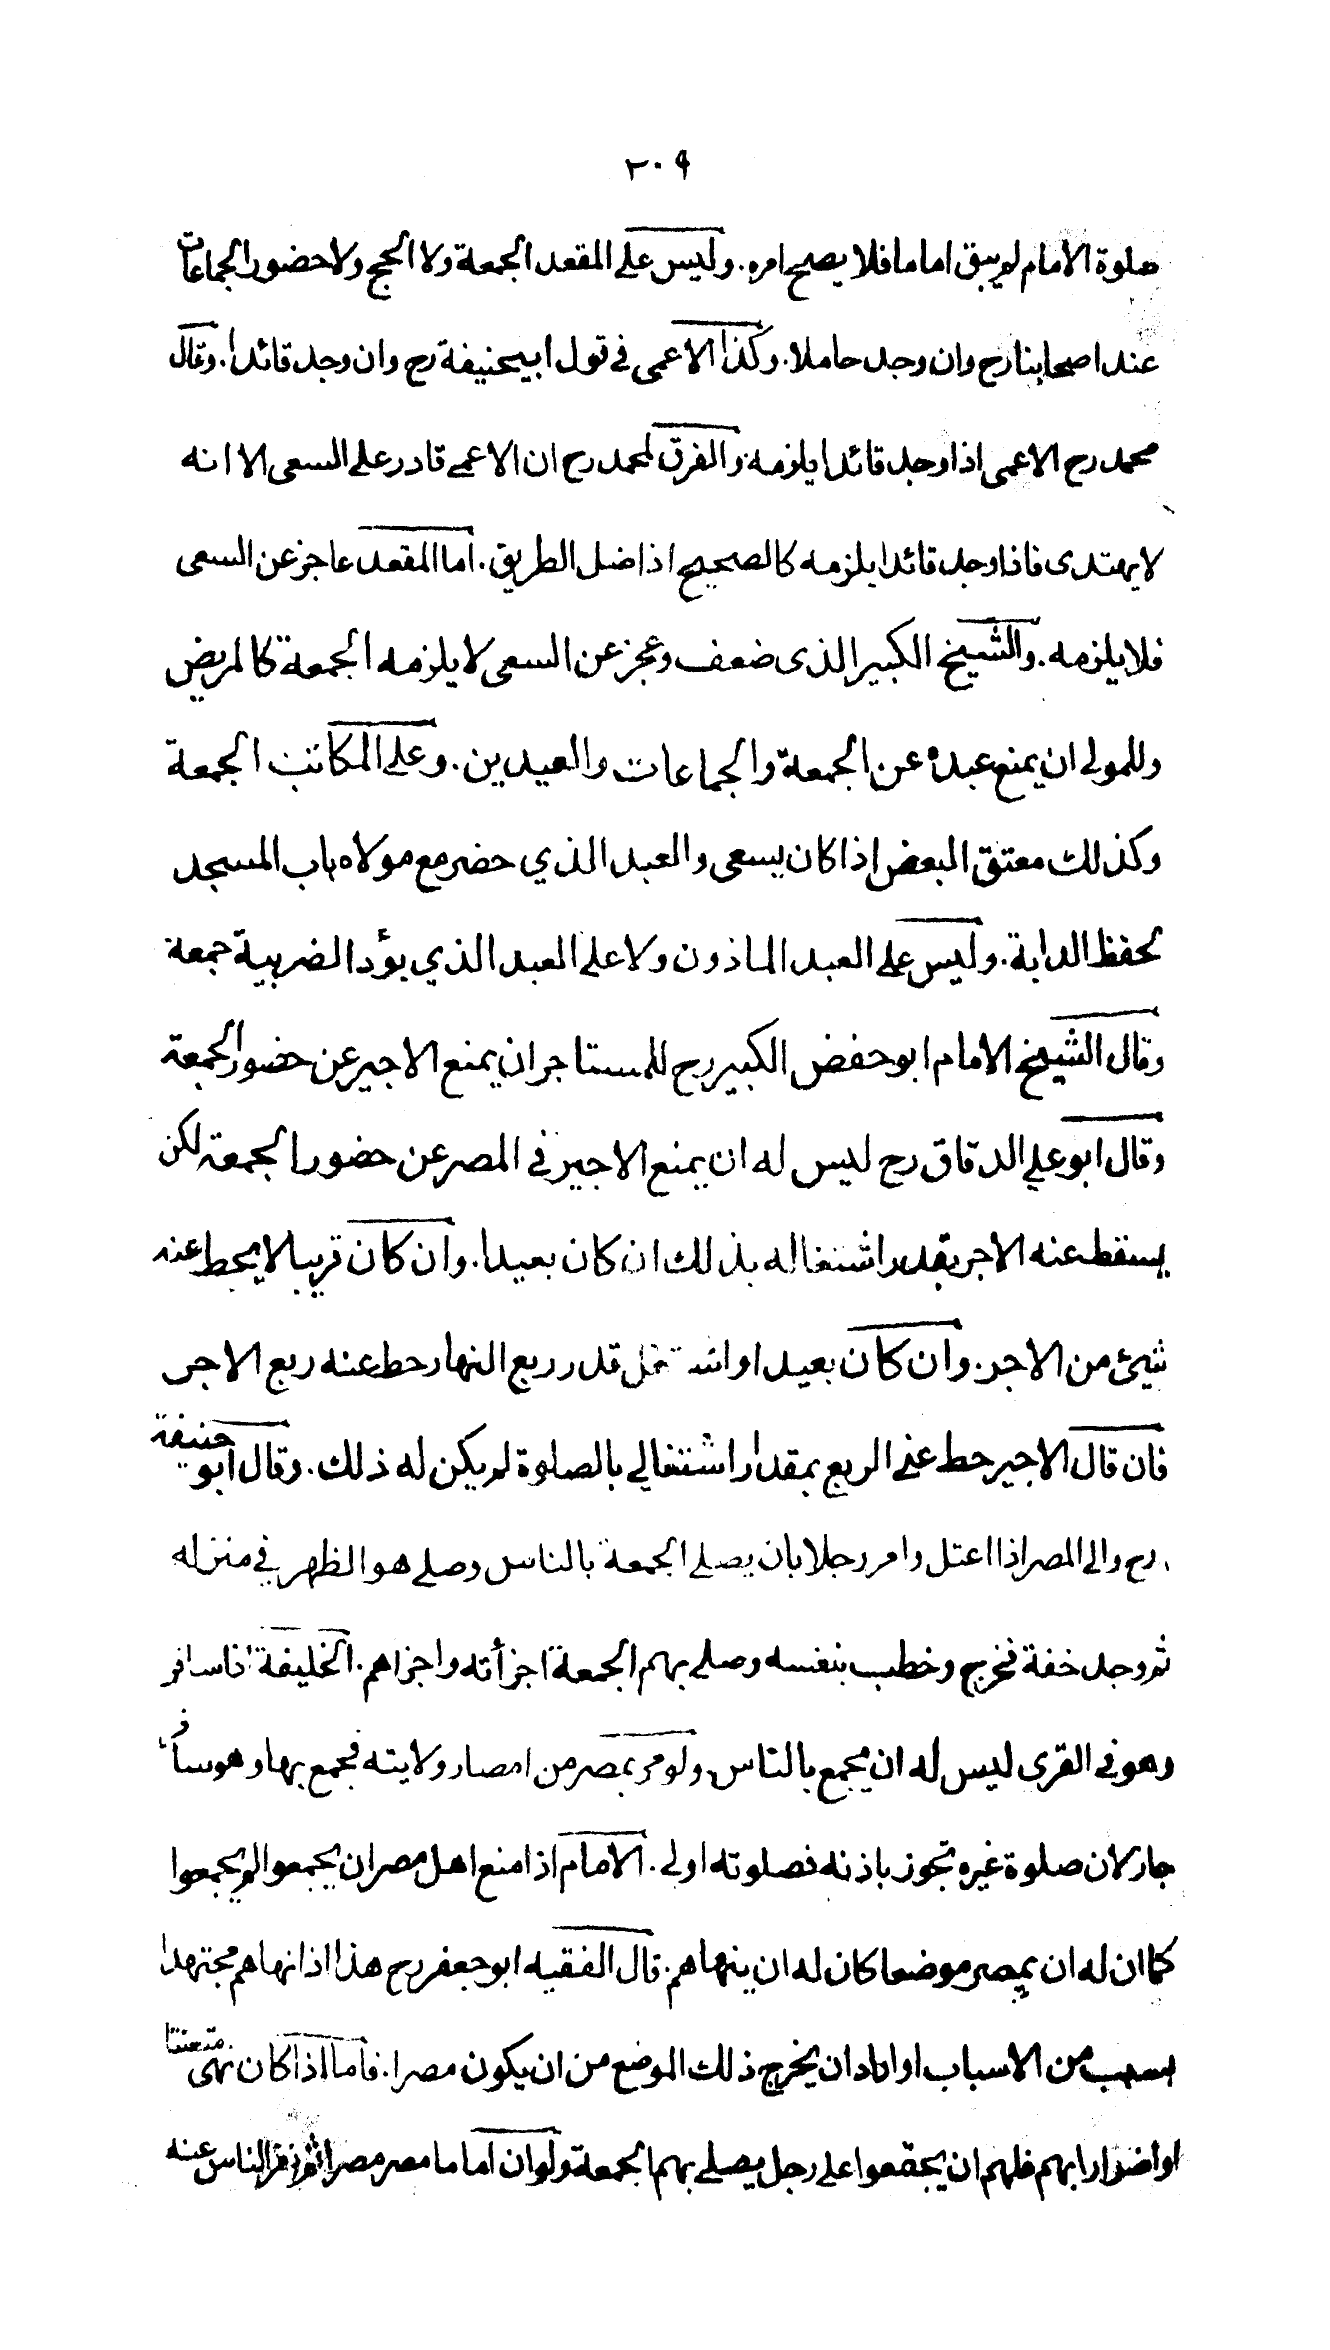 ٢٠٩
صلوة الامام لم يبق اماما فلا يصح امره. وليس على المقعد الجمعة ولا الحج ولا حضور الجماعات
عند اصحابنا رح وان وجد حاملا. وكذا الاعمى في قول ابيحنيفة رح وان وجد قائدا. وقال
محمد رح الاعمى اذا وجد قائدا يلزمه والفرق لمحمد رح ان الاعمى قادر على السعى الا انه
لا يهتدى فاذا وجد قائدا يلزمه كالصحيح اذا ضل الطريق. اما المقعد عاجز عن السعى
فلا يلزمه. والشيخ الكبير الذى ضعف وعجز عن السعى لا يلزمه الجمعة كالمريض
وللمولى ان يمنع عبده عن الجمعة والجماعات والعيدين. وعلى المكاتب الجمعة
وكذلك معتق البعض اذا كان يسعى والعبد الذي حضر مع مولاه باب المسجد
لحفظ الدابة. وليس على العبد الماذون ولا على العبد الذي يؤدا الضريبة جمعة
وقال الشيخ الامام ابو حفض الكبير رح للمستاجر ان يمنع الاجير عن حضور الجمعة
وقال ابو علي الدقاق رح ليس له ان يمنع الاجير في المصر عن حضور الجمعة لكن
يسقط عنه الاجر بقدر اشتغاله بذلك ان كان بعيدا. وان كان قريبا لا يحط عنه
شيئ من الاجر. وان كان بعيدا واشتغل قدر ربع النهار حط عنه ربع الاجر
فان قال الاجير حط عني الربع بمقدار اشتغالي بالصلوة لم يكن له ذلك. وقال ابو حنيفة
رح والى المصر اذا اعتل وامر رجلا بان يصلي الجمعة بالناس وصلى هو الظهر في منزله
ثم وجد خفة فخرج وخطب بنفسه وصلى بهم الجمعة اجزأته واجزاهم. الخليفة اذا سافر
وهو في القرى ليس له ان يجمع بالناس ولو مر بمصر من امصار ولايته فجمع بها وهو مسافر
جاز لان صلوة غيره تجوز باذنه فصلوته اولى. الامام اذا منع اهل مصر ان يجمعوا لم يجمعوا
كما ان له ان يمصر موضعا كان له ان ينهاهم. قال الفقيه ابو جعفر رح هذا اذا نهاهم مجتهدا
بسبب من الاسباب او اراد ان يخرج ذلك الموضع من ان يكون مصرا. فاما اذا كان نهى متعنتا
او اضرارا بهم فلهم ان يجتمعوا على رجل يصلي بهم الجمعة ولو ان اماما مصر مصرا ثم نفر الناس عنه